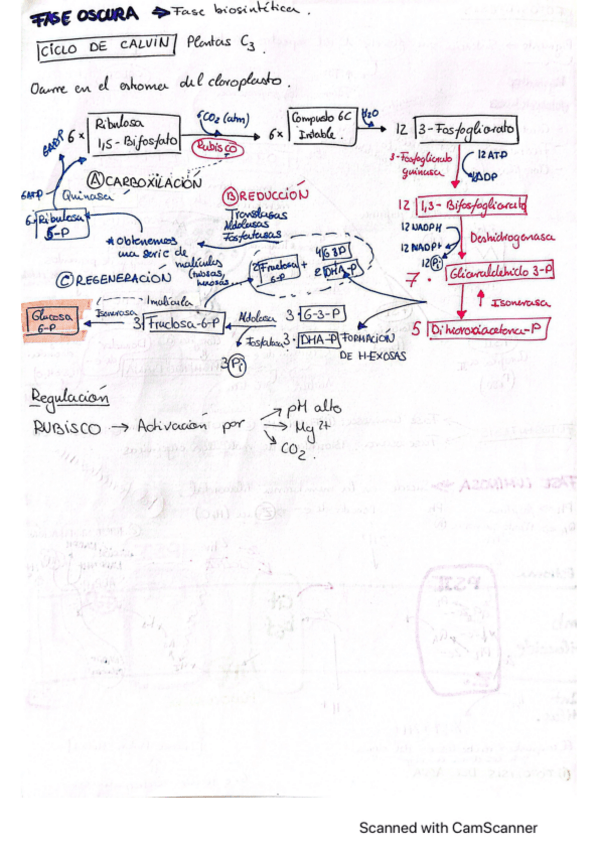 FASE OSCURA → Fase biosintética.
CICLO DE CALVIN Plantas C3.
Ocurre en el estroma del cloroplasto.
6 × Ribulosa 1,5-Bifosfato
6CO2 (atm)
Rubisco
6 × Compuesto 6C Instable.
H2O
12 3-Fosfoglicerato
3-Fosfoglicerato quinasa
12 ATP
ADP
6ADP
6ATP
Quinasa
Ⓐ CARBOXILACIÓN
Ⓑ REDUCCIÓN
12 1,3-Bifosfoglicerato
6 Ribulosa 5-P
Translasas
Aldolasas
Fosfatasas
12 NADPH
12 NADP+
12 Pi
Deshidrogenasa
* Obtenemos una serie de moléculas
Ⓒ REGENERACIÓN
2 Fructosa 6-P +
4 G3P
2 DHA-P
7. Gliceraldehido 3-P
Isomerasa
1 molécula
Glucosa 6-P
Isomerasa
3 Fructosa-6-P
Aldolasa
Fosfatasa
3 Pi
3 G-3-P
3. DHA-P
FORMACIÓN DE HEXOSAS
5 Dihidroxiacetona-P
Regulación
RUBISCO → Activación por → pH alto
→ Mg2+
→ CO2.
Scanned with CamScanner